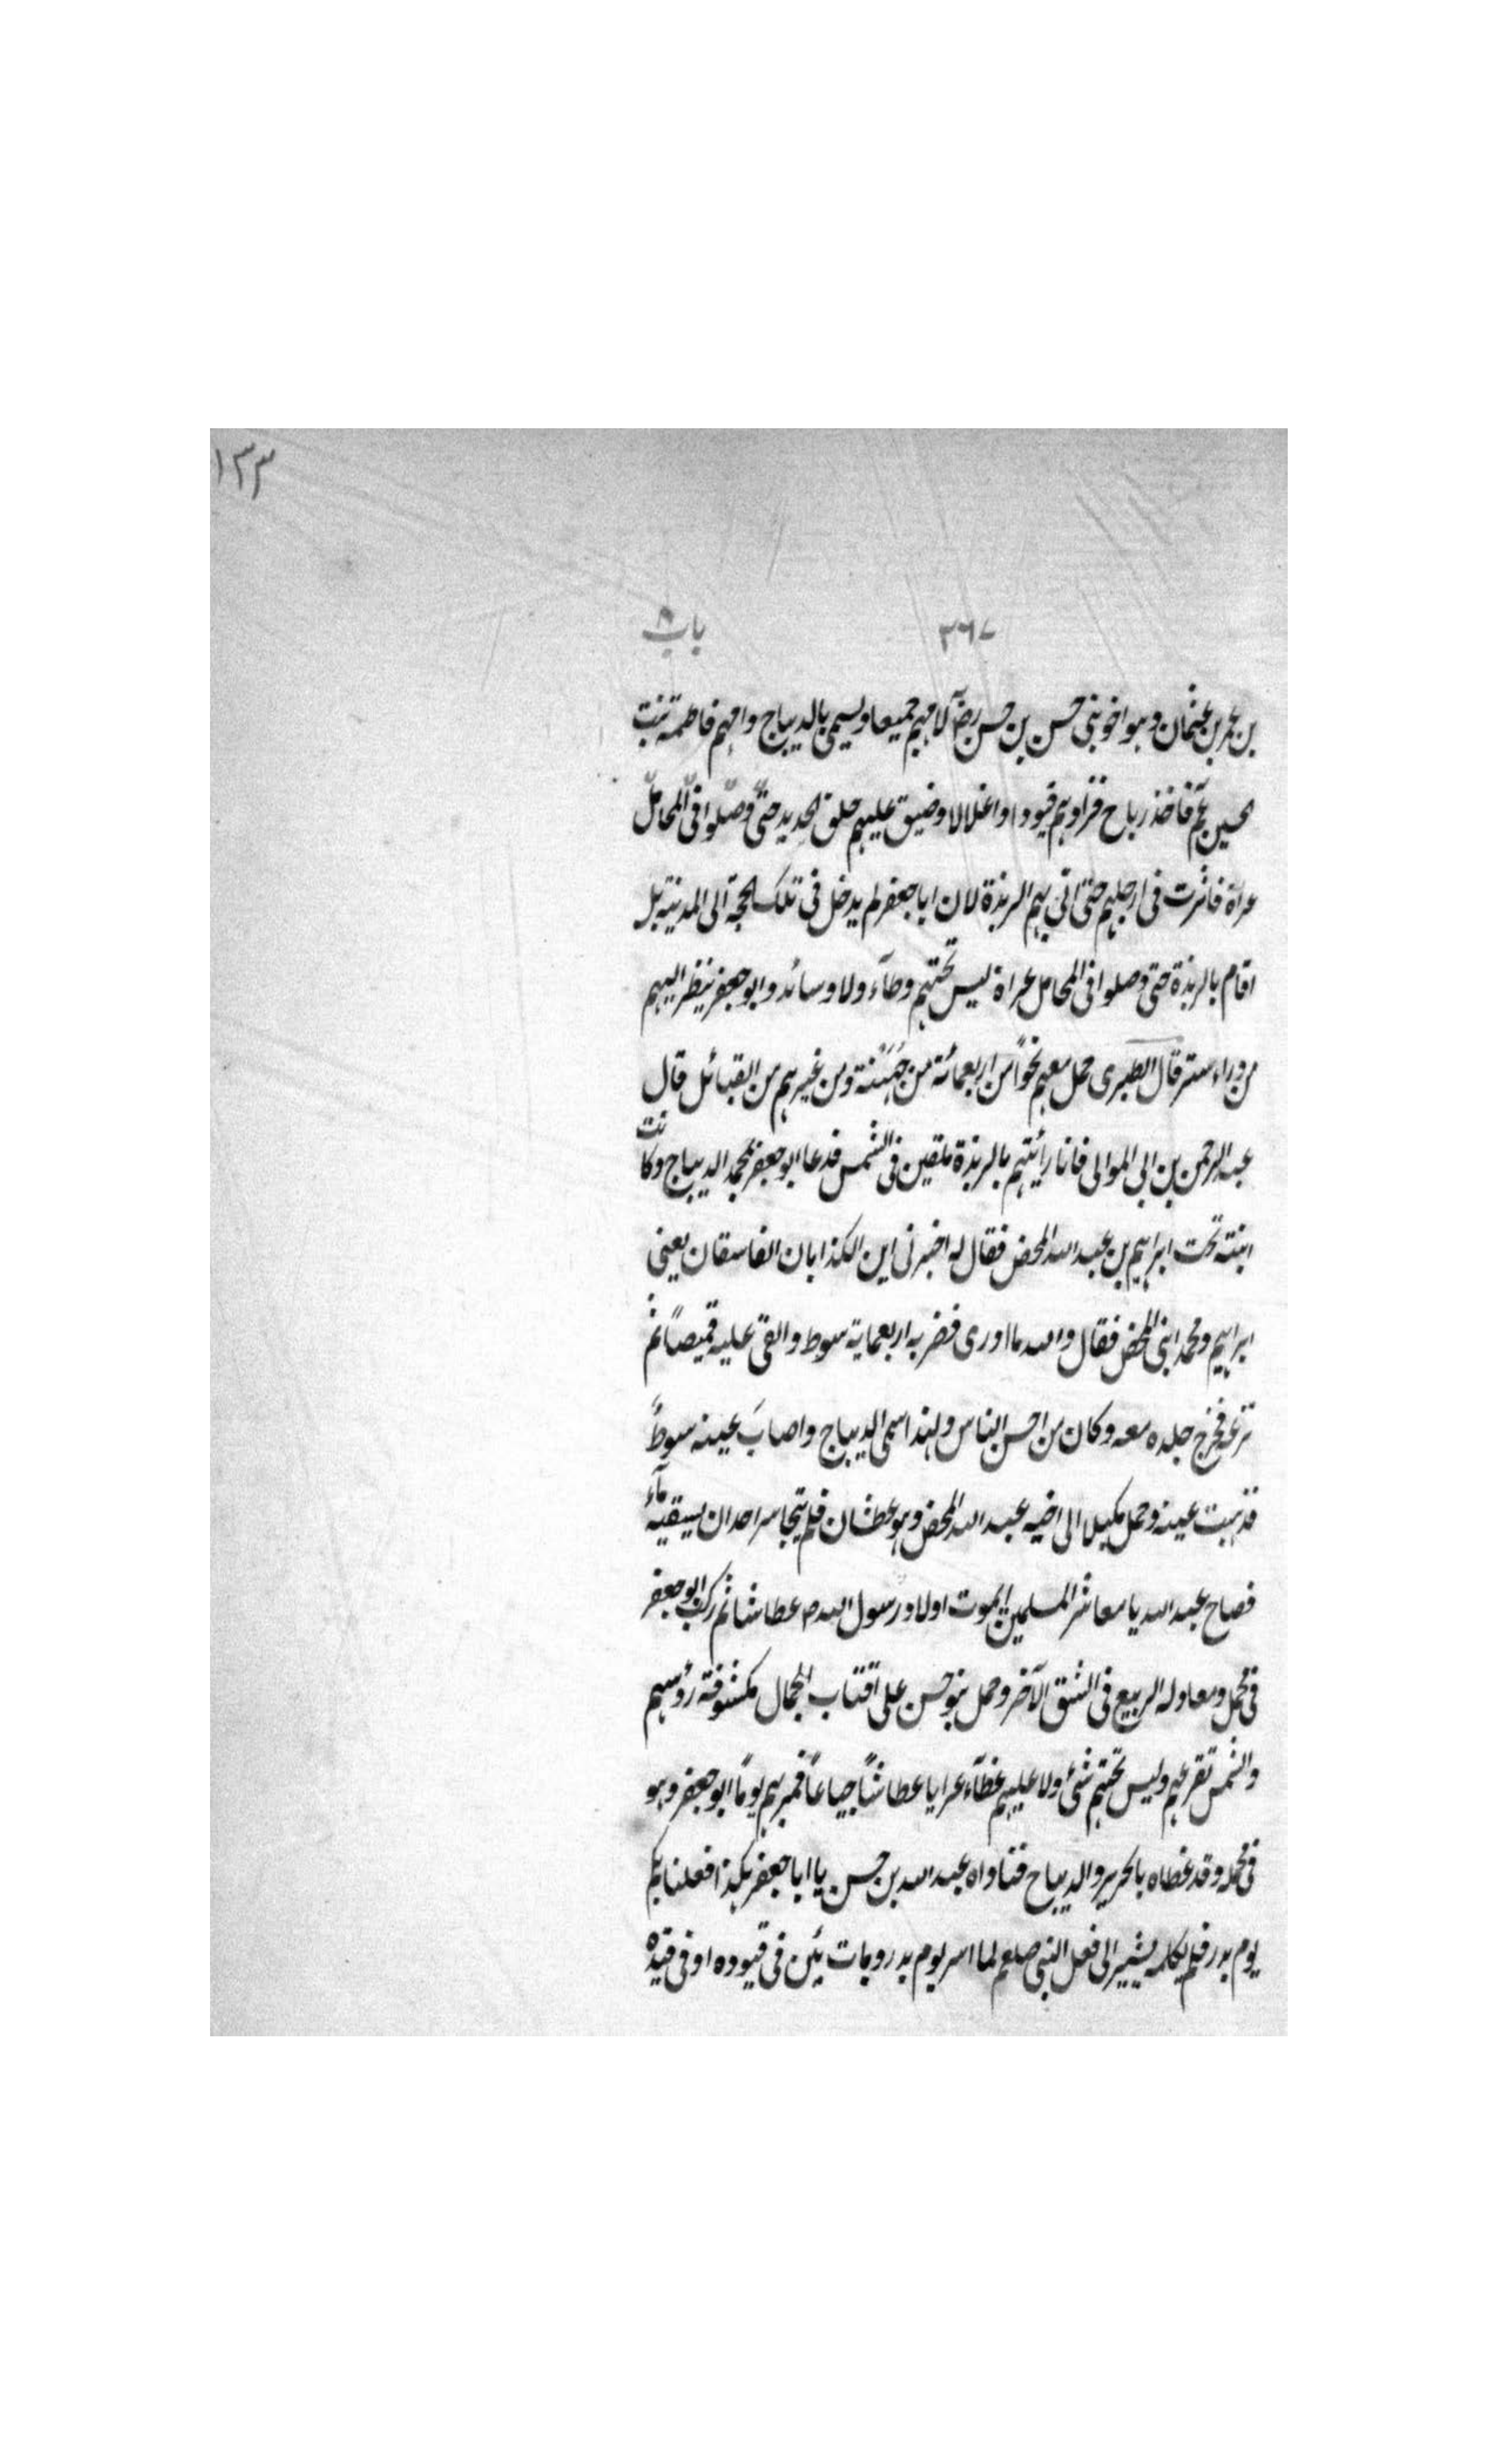 ١٣٣
٣٦٧ باب ٨
بن عمر بن عثمان وهو اخو بنى حسن بن حسن رضٓ لامهم جميعا ويسمى بالديباج وامهم فاطمة بنت
الحسين فاخذ رباح فزادهم قيودا واغلالا وضيق عليهم حلق الحديد حتى وصلوا فى المحامل
عراة فاثرت فى ارجلهم حتى اتى بهم الربذة لان ابا جعفر لم يدخل فى تلك الحجة الى المدينة بل
اقام بالربذة حتى وصلوا فى المحامل عراة ليس تحتهم وطآء ولا وسائد وابو جعفر ينظر اليهم
من وراء ستر قال الطبرى حمل معهم نحواً من اربعمائة من جُهَيْنة ومن غيرهم من القبائل قال
عبد الرحمن بن ابى الموالى فانا رأيتهم بالربذة ملقين فى الشمس فدعا ابو جعفر محمد الديباج وكانت
ابنته تحت ابراهيم بن عبد الله المحض فقال له اخبرنى اين الكذابان الفاسقان يعنى
ابراهيم ومحمد ابنى المحض فقال والله ما ادرى فضربه اربعماية سوط والقى عليه قميصاً ثم
نزعه فخرج جلده معه وكان من احسن الناس ولهذا سمى الديباج واصابَ عينه سوطٌ
فذهبت عينه وحمل مكبلا الى اخيه عبد الله المحض وهو عطشان فلم يتجاسر احد ان يسقيه مآءً
فصاح عبد الله يا معاشر المسلمين ايموت اولاد رسول الله ص عطاشا ثم ركب ابو جعفر
فى محمل ومعادله الربيع فى الشق الآخر وحمل بنو حسن على اقتاب الجمال مكشوفة رؤسهم
والشمس تقرعهم وليس تحتهم شئ ولا عليهم غطآء عرايا عطاشاً جياعاً فمر بهم يوماً ابو جعفر وهو
فى محمله وقد غطاه بالحرير والديباج فناداه عبد الله بن حسن يا ابا جعفر هكذا فعلنا بكم
يوم بدر فلم يكلمه يشير الى فعل النبى صلعم لما اسر يوم بدر وبات يئن فى قيوده او فى قيده